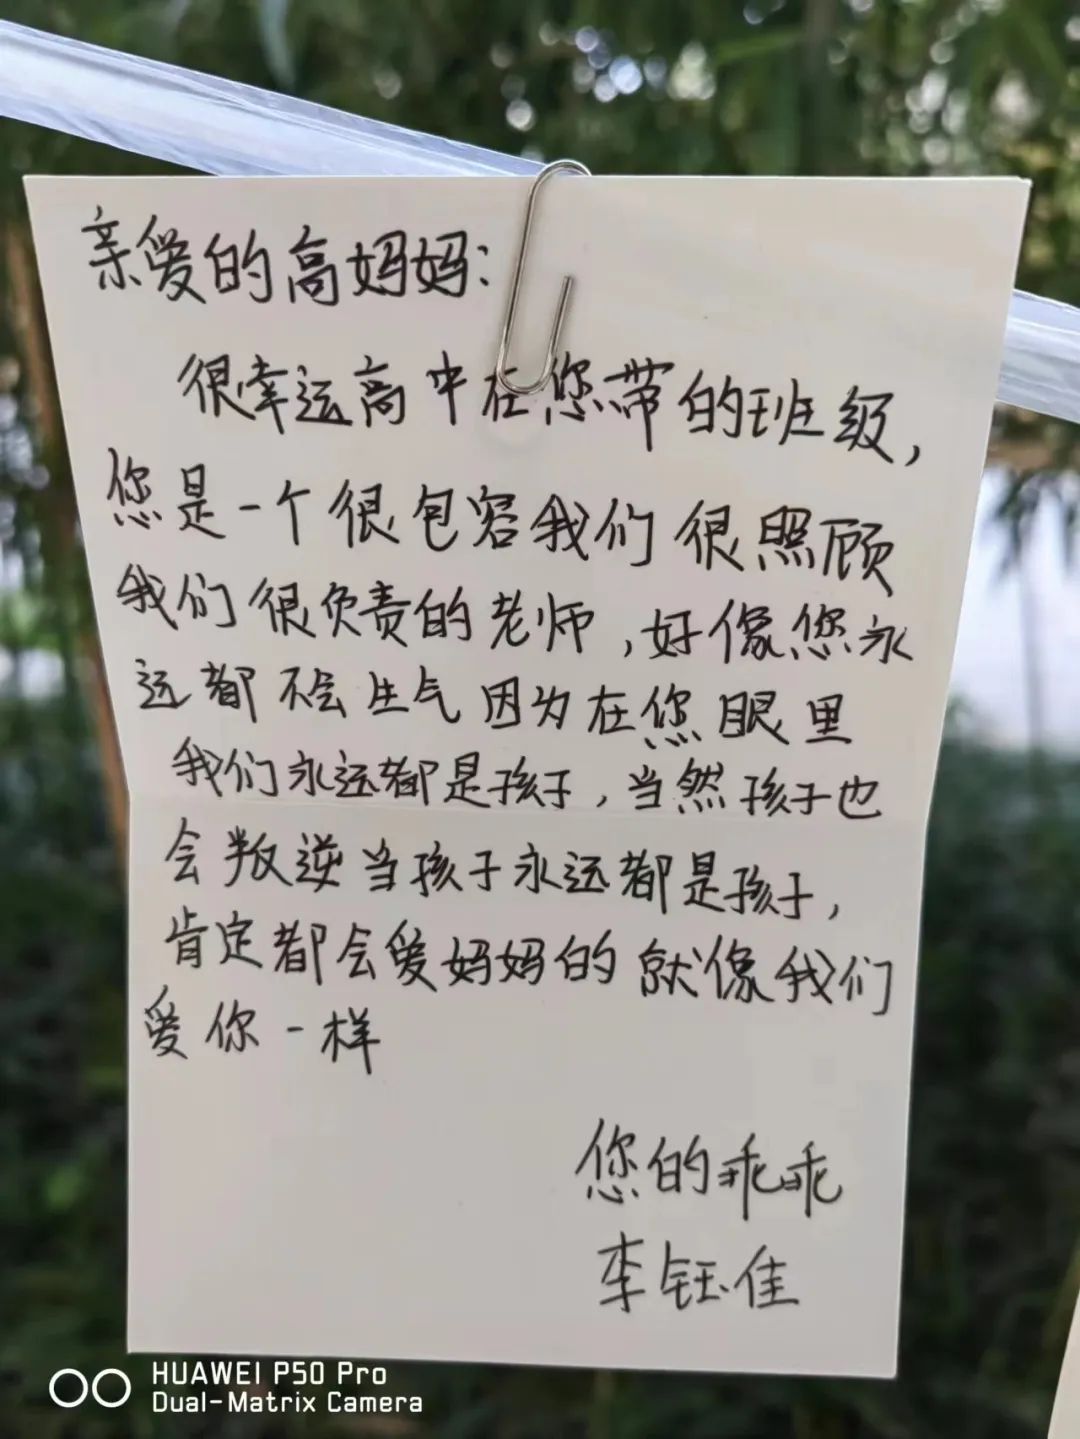 亲爱的高妈妈：
很幸运高中在您带的班级，
您是一个很包容我们很照顾
我们很负责的老师，好像您永
远都不会生气因为在您眼里
我们永远都是孩子，当然孩子也
会叛逆当孩子永远都是孩子，
肯定都会爱妈妈的就像我们
爱你一样
您的乖乖
李钰佳
HUAWEI P50 Pro
Dual-Matrix Camera